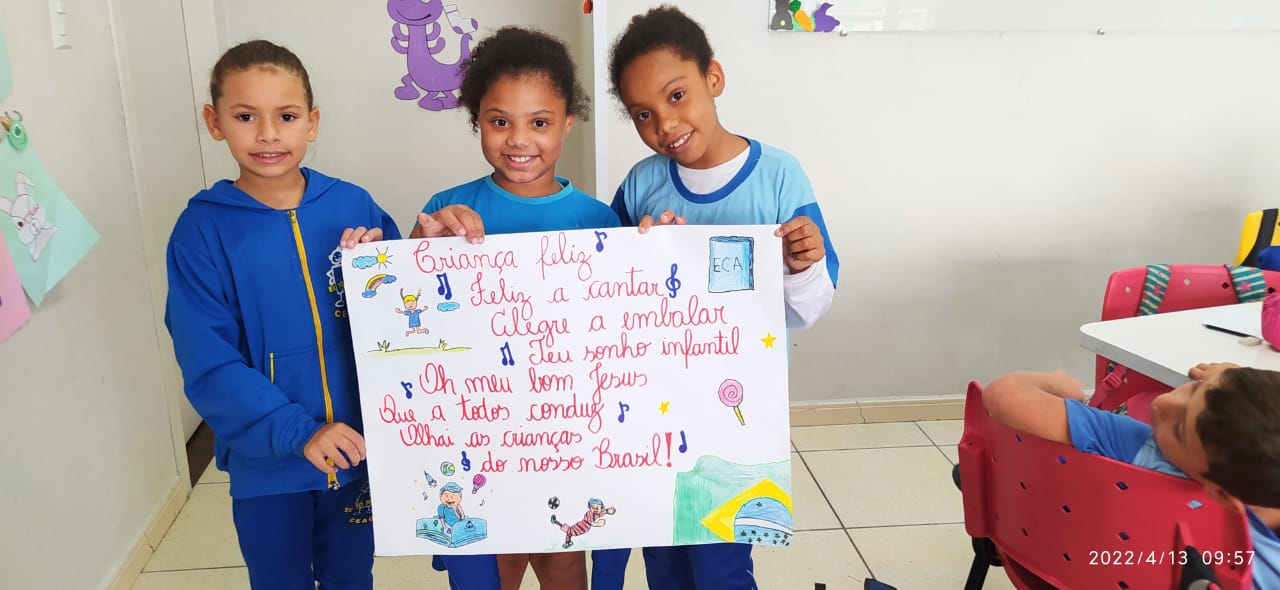 Criança feliz
Feliz a cantar
Alegre a embalar
Teu sonho infantil
Oh meu bom Jesus
Que a todos conduz
Olhai as crianças
do nosso Brasil!
ECA
EU
CEA
EU
CEAC
2022/4/13 09:57